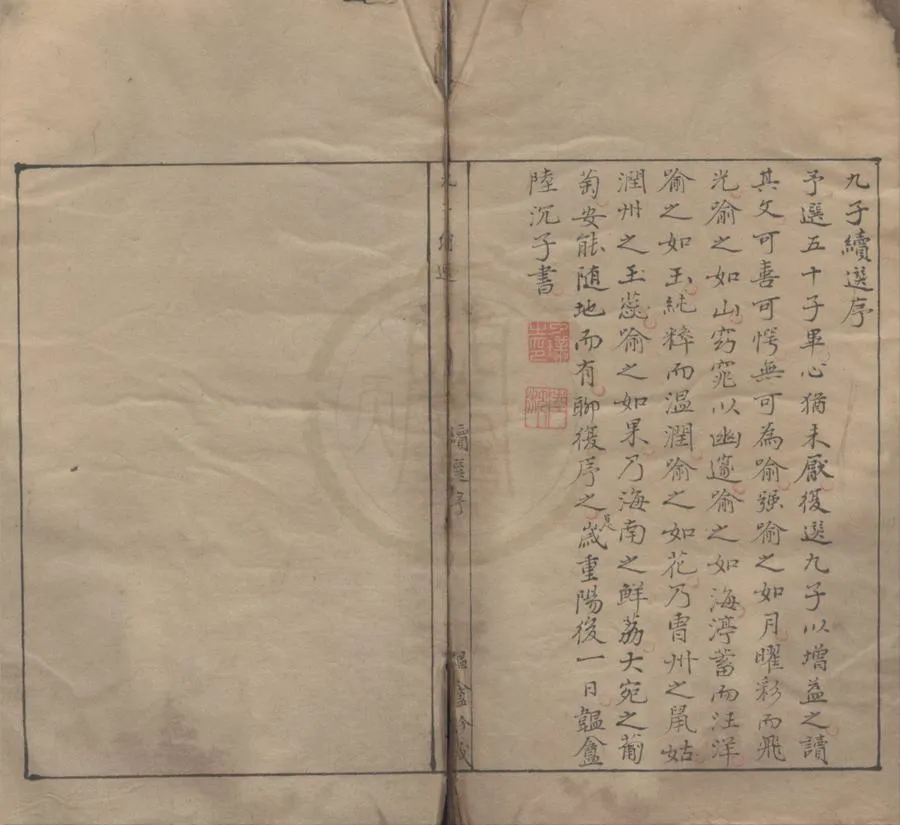 九子續選序
予選五十子畢心猶未厭復選九子以增益之讀
其文可喜可愕無可為喻強喻之如月曜彩而飛
光喻之如山窈窕以幽邃喻之如海渟蓄而汪洋
喻之如玉純粹而温潤喻之如花乃曹州之鼠姑
潤州之玉蕊喻之如果乃海南之鮮荔大宛之葡
萄安能随地而有聊復序之是歲重陽後一日韞盦
陸沉子書
九子續選
續選序
韞盦珍藏